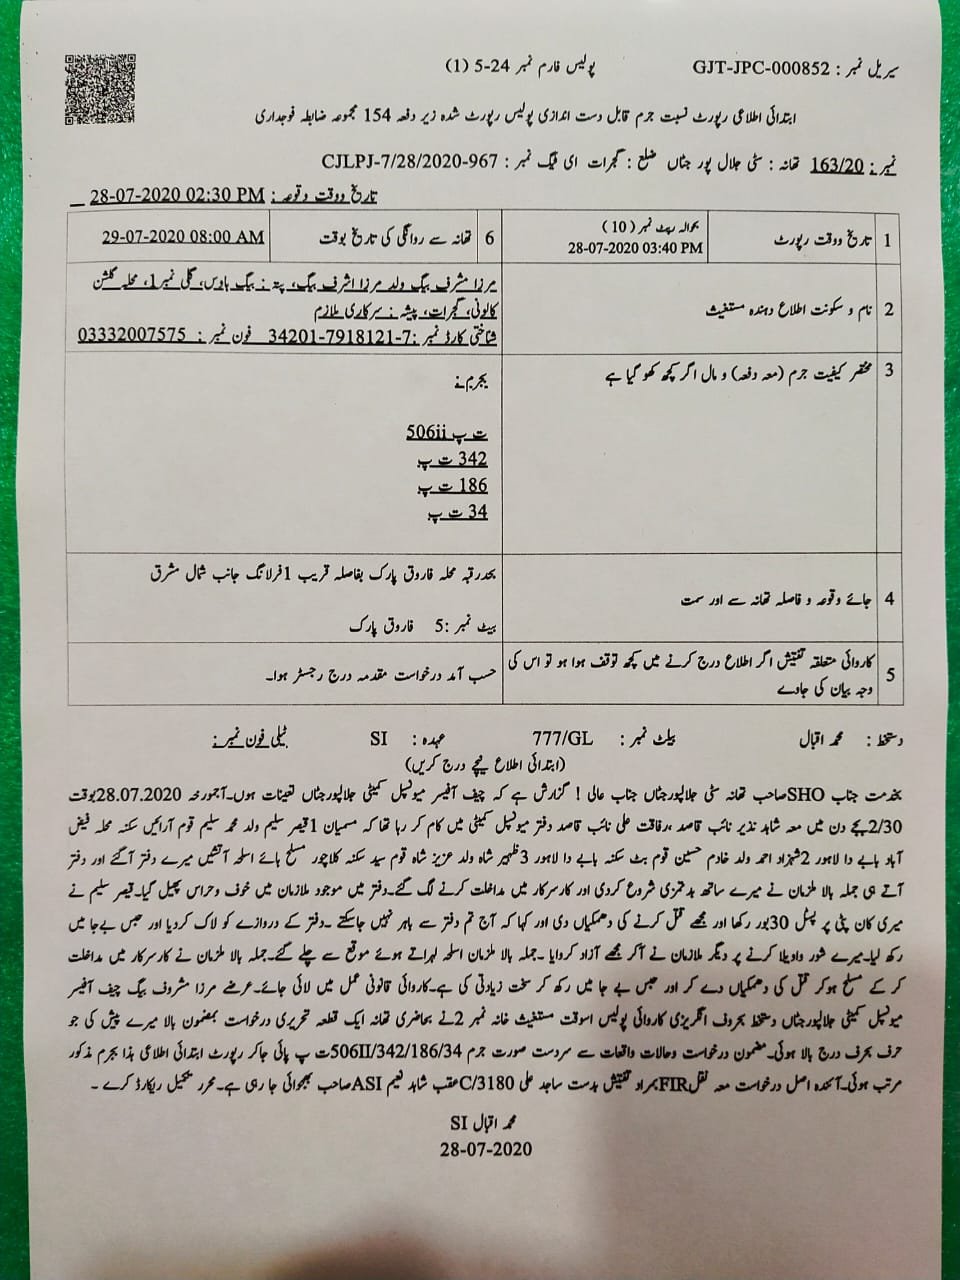 سیریل نمبر : GJT-JPC-000852 پولیس فارم نمبر 24-5 (1)
ابتدائی اطلاعی رپورٹ نسبت جرم قابل دست اندازی پولیس رپورٹ شدہ زیر دفعہ 154 مجموعہ ضابطہ فوجداری
نمبر : 163/20 تھانہ : سٹی جلال پور جٹاں ضلع : گجرات ای ٹیگ نمبر : CJLPJ-7/28/2020-967
تاریخ ووقت وقوعہ : 28-07-2020 02:30 PM
1 تاریخ ووقت رپورٹ بحوالہ رپٹ نمبر ( 10 ) 28-07-2020 03:40 PM
6 تھانہ سے روانگی کی تاریخ بوقت 29-07-2020 08:00 AM
2 نام و سکونت اطلاع دہندہ مستغیث
مرزا مشرف بیگ ولد مرزا اشرف بیگ، پتہ : بیگ ہاوس، گلی نمبر 1، محلہ گلشن
کالونی، گجرات، پیشہ : سرکاری ملازم
شناختی کارڈ نمبر :7-7918121-34201 فون نمبر : 03332007575
3 مختصر کیفیت جرم (معہ دفعہ) و مال اگر کچھ کھو گیا ہے
بجرم :
ت پ 506ii
342 ت پ
186 ت پ
34 ت پ
4 جائے وقوعہ و فاصلہ تھانہ سے اور سمت
بحدرقبہ محلہ فاروق پارک بفاصلہ قریب 1فرلانگ جانب شمال مشرق
بیٹ نمبر :5 فاروق پارک
5 کاروائی متعلقہ تفتیش اگر اطلاع درج کرنے میں کچھ توقف ہوا ہو تو اس کی
وجہ بیان کی جاوے
حسب آمد درخواست مقدمہ درج رجسٹر ہوا۔
دستخط : محمد اقبال بیلٹ نمبر : 777/GL عہدہ : SI ٹیلی فون نمبر :
(ابتدائی اطلاع نیچے درج کریں)
بخدمت جناب SHOصاحب تھانہ سٹی جلالپورجٹاں جناب عالی ! گزارش ہے کہ چیف آفیسر میونسپل کمیٹی جلالپورجٹاں تعینات ہوں۔آجمورخہ 28.07.2020بوقت
2/30بجے دن میں معہ شاہد نذیر نائب قاصد ،رفاقت علی نائب قاصد دفتر میونسپل کمیٹی میں کام کر رہا تھا کہ مسمیان 1قیصر سلیم ولد محمد سلیم قوم آرائیں سکنہ محلہ فیض
آباد بابے دا لاہور 2شہزاد احمد ولد خادم حسین قوم بٹ سکنہ بابے دا لاہور 3ظہیر شاہ ولد عزیز شاہ قوم سید سکنہ کلاچور مسلح ہائے اسلحہ آتشیں میرے دفتر آگئے اور دفتر
آتے ہی جملہ بالا ملزمان نے میرے ساتھ بدتمزی شروع کردی اور کارسرکار میں مداخلت کرنے لگ گئے۔دفتر میں موجود ملازمان میں خوف وحراس پھیل گیا۔قیصر سلیم نے
میری کان پٹی پر پسٹل 30بور رکھا اور مجھے قتل کرنے کی دھمکیاں دی اور کہا کہ آج تم دفتر سے باہر نہیں جاسکتے ۔دفتر کے دروازے کو لاک کردیا اور حبس بےجا میں
رکھ لیا۔میرے شور واویلا کرنے پر دیگر ملازمان نے آکر مجھے آزاد کروایا ۔جملہ بالا ملزمان اسلحہ لہراتے ہوئے موقع سے چلے گئے۔جملہ بالا ملزمان نے کارسرکار میں مداخلت
کر کے مسلح ہوکر قتل کی دھمکیاں دے کر اور حبس بے جا میں رکھ کر سخت زیادتی کی ہے۔کاروائی قانونی عمل میں لائی جائے۔عرضے مرزا مشروف بیگ چیف آفیسر
میونسپل کمیٹی جلالپورجٹاں دستخط بحروف انگریزی کاروائی پولیس اسوقت مستغیث خانہ نمبر 2نے بحاضری تھانہ ایک قطعہ تحریری درخواست بمضمون بالا میرے پیش کی جو
حرف بحرف درج بالا ہوئی۔مضمون درخواست وحالات واقعات سے سردست صورت جرم 506II/342/186/34ت پ پائی جاکر رپورٹ ابتدائی اطلاعی ہذا بجرم مذکور
مرتب ہوئی۔آئندہ اصل درخواست معہ نقل FIRبمراد تفتیش بدست ساجد علی C/3180عقب شاہد نعیم ASIصاحب بھجوائی جا رہی ہے۔محرر تکمیل ریکارڈ کرے ۔
محمد اقبال SI
28-07-2020